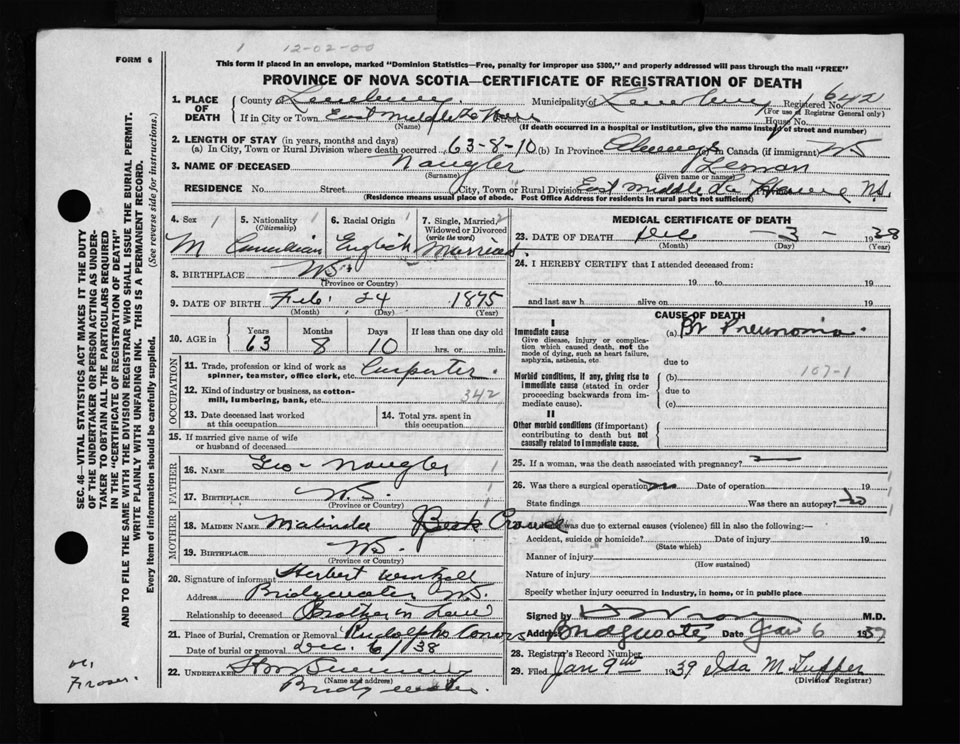 1 12-02-00
FORM 6
This form if placed in an envelope, marked "Dominion Statistics—Free, penalty for improper use $300," and properly addressed will pass through the mail "FREE"
PROVINCE OF NOVA SCOTIA—CERTIFICATE OF REGISTRATION OF DEATH
1. PLACE OF DEATH County of Lunenburg Municipality of Lunenburg Registered No. 642
(For use of Registrar General only)
If in City or Town East Middle Street House No.
(Name) (If death occurred in a hospital or institution, give the name instead of street and number)
2. LENGTH OF STAY (in years, months and days)
(a) In City, Town or Rural Division where death occurred 63-8-10 (b) In Province Always (c) In Canada (if immigrant) NS
3. NAME OF DECEASED Naugler Leman
(Surname) (Given name or names)
RESIDENCE No. Street City, Town or Rural Division East Middle La Have N.S.
(Residence means usual place of abode. Post Office Address for residents in rural parts not sufficient)
4. Sex 5. Nationality (Citizenship) 6. Racial Origin 7. Single, Married, Widowed or Divorced (write the word)
M Canadian English Married
8. BIRTHPLACE N.S.
(Province or Country)
9. DATE OF BIRTH Feb. 24 1875
(Month) (Day) (Year)
10. AGE in Years Months Days If less than one day old
63 8 10 hrs. or min.
OCCUPATION
11. Trade, profession or kind of work as spinner, teamster, office clerk, etc. Carpenter.
12. Kind of industry or business, as cotton-mill, lumbering, bank, etc. 342
13. Date deceased last worked at this occupation 14. Total yrs. spent in this occupation
15. If married give name of wife or husband of deceased
FATHER
16. NAME Geo Naugler
17. BIRTHPLACE N.S.
MOTHER
18. MAIDEN NAME Malinda Beck
19. BIRTHPLACE N.S.
(Province or Country)
20. Signature of informant Herbert
Address Bridgewater N.S.
Relationship to deceased Brother in Law
21. Place of Burial, Cremation or Removal Rudolph's Corner
Date of burial or removal Dec. 6/38
22. UNDERTAKER
(Name and address)
Bridgewater.
MEDICAL CERTIFICATE OF DEATH
23. DATE OF DEATH Dec - 3 - 1938
(Month) (Day) (Year)
24. I HEREBY CERTIFY that I attended deceased from:
19 to 19
and last saw h alive on 19
CAUSE OF DEATH
I
Immediate cause (a) Br Pneumonia.
Give disease, injury or complication which caused death, not the mode of dying, such as heart failure, asphyxia, asthenia, etc.
due to
Morbid conditions, if any, giving rise to immediate cause (stated in order proceeding backwards from immediate cause). (b) 107-1
due to
(c)
II
Other morbid conditions (if important) contributing to death but not causally related to immediate cause.
25. If a woman, was the death associated with pregnancy?
26. Was there a surgical operation no Date of operation 19
State findings Was there an autopsy? no
was due to external causes (violence) fill in also the following:—
Accident, suicide or homicide? Date of injury 19
(State which)
Manner of injury
(How sustained)
Nature of injury
Specify whether injury occurred in industry, in home, or in public place
Signed by M.D.
Address Bridgewater Date Jan 6
28. Registrar's Record Number
29. Filed Jan 9th 1939 Ida M. Tupper
(Division Registrar)
SEC. 46—VITAL STATISTICS ACT MAKES IT THE DUTY
OF THE UNDERTAKER OR PERSON ACTING AS UNDER-
TAKER TO OBTAIN ALL THE PARTICULARS REQUIRED
IN THE "CERTIFICATE OF REGISTRATION OF DEATH"
AND TO FILE THE SAME WITH THE DIVISION REGISTRAR WHO SHALL ISSUE THE BURIAL PERMIT.
WRITE PLAINLY WITH UNFADING INK. THIS IS A PERMANENT RECORD.
Every item of information should be carefully supplied. (See reverse side for instructions.)
Fraser.